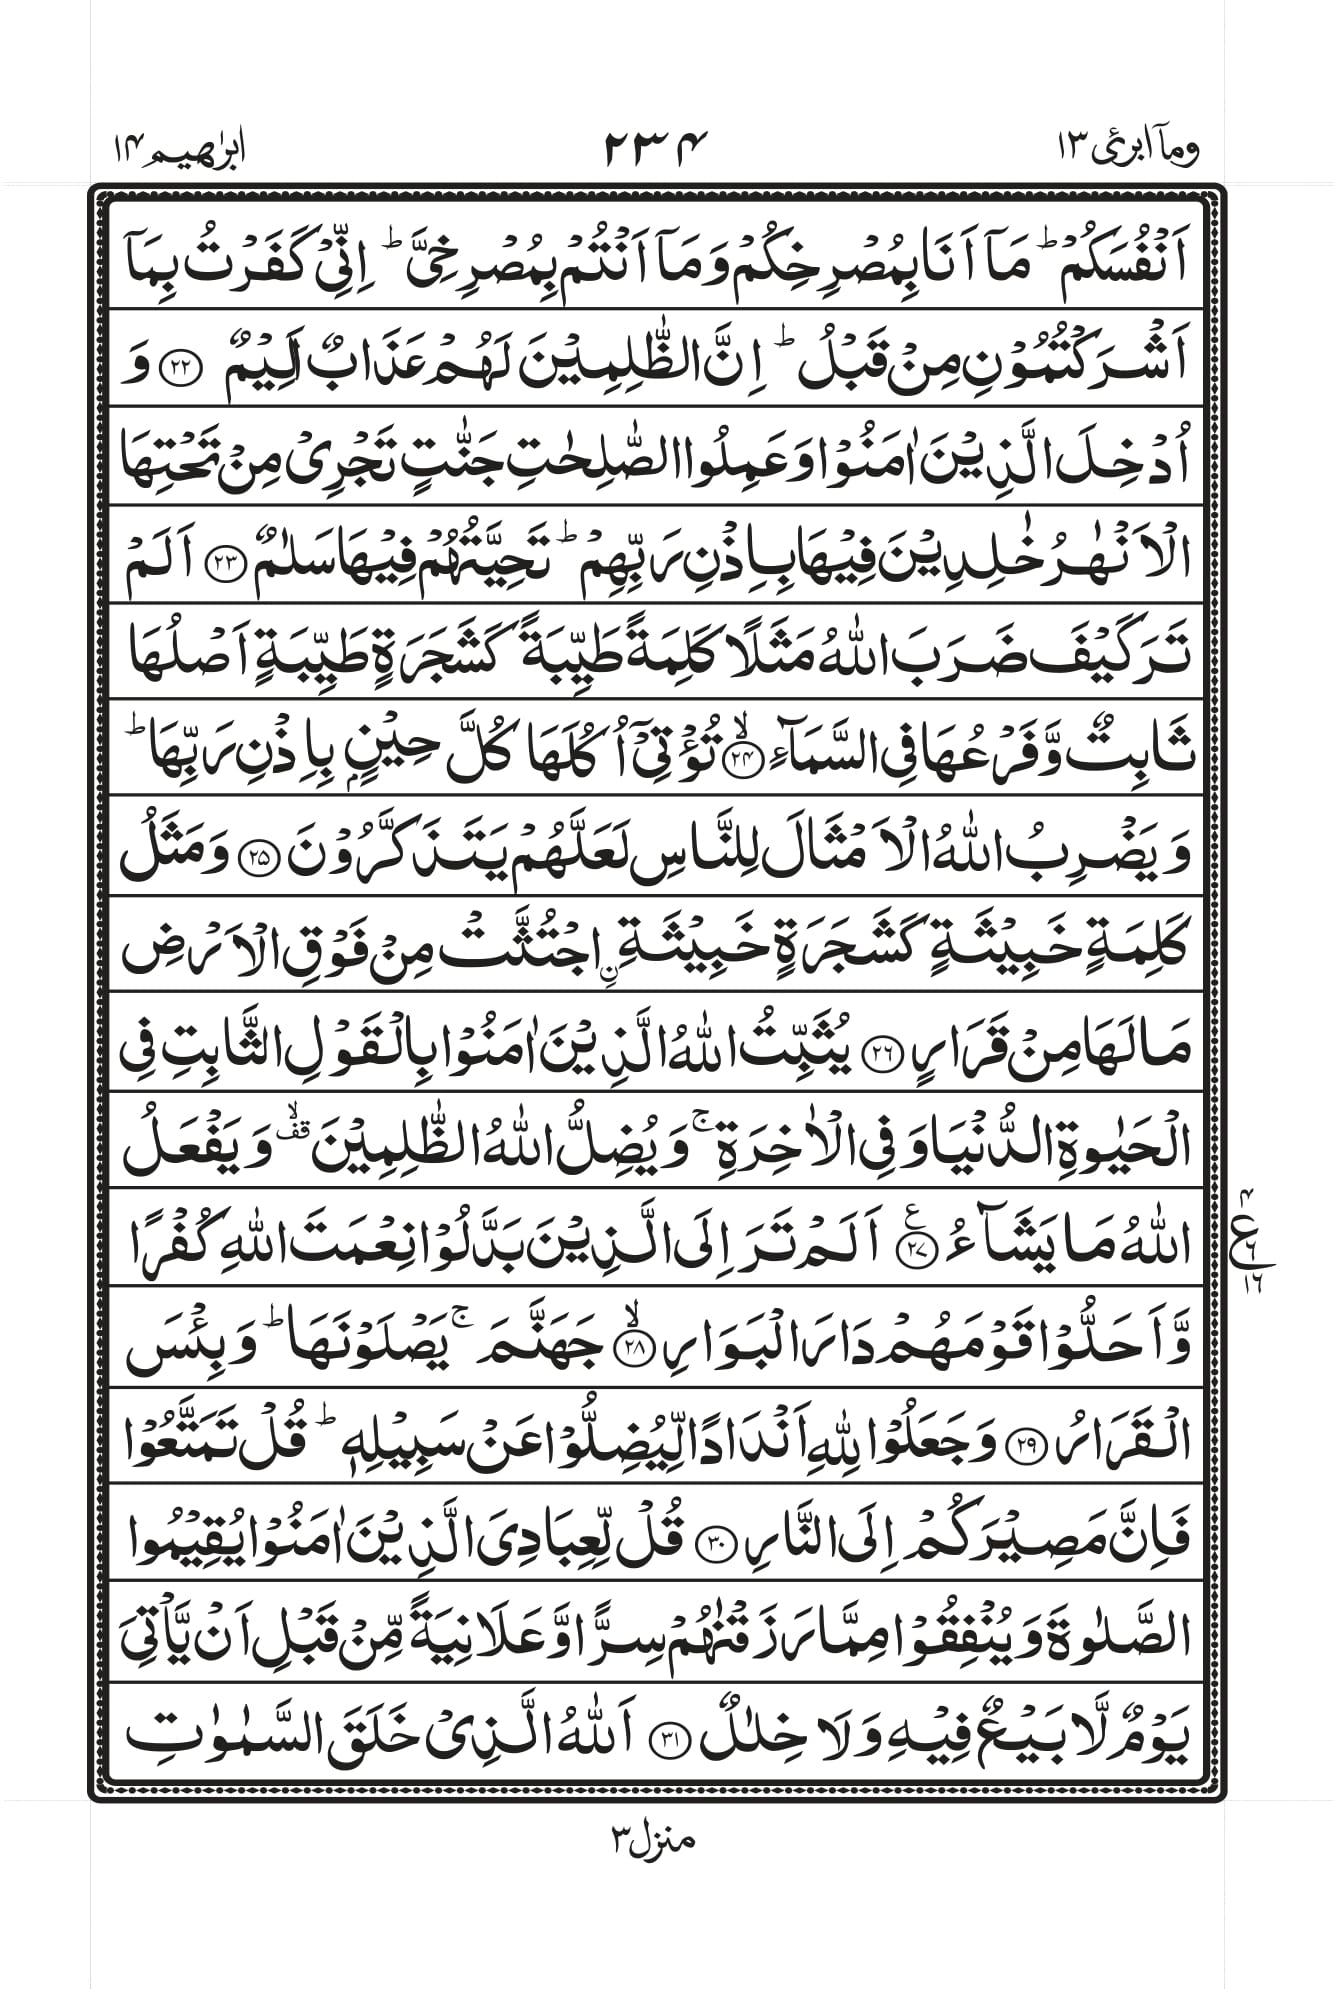 ومآ ابرئ ١٣
٢٣۴
ابرٰهيم ١۴
اَنۡفُسَكُمۡ ؕ مَاۤ اَنَا بِمُصۡرِخِكُمۡ وَمَاۤ اَنۡتُمۡ بِمُصۡرِخِىَّ ؕ اِنِّىۡ كَفَرۡتُ بِمَاۤ
اَشۡرَكۡتُمُوۡنِ مِنۡ قَبۡلُ ؕ اِنَّ الظّٰلِمِيۡنَ لَهُمۡ عَذَابٌ اَلِيۡمٌ ﴿۲۲﴾ وَ
اُدۡخِلَ الَّذِيۡنَ اٰمَنُوۡا وَعَمِلُوا الصّٰلِحٰتِ جَنّٰتٍ تَجۡرِىۡ مِنۡ تَحۡتِهَا
الۡاَنۡهٰرُ خٰلِدِيۡنَ فِيۡهَا بِاِذۡنِ رَبِّهِمۡ ؕ تَحِيَّتُهُمۡ فِيۡهَا سَلٰمٌ ﴿۲۳﴾ اَلَمۡ
تَرَ كَيۡفَ ضَرَبَ اللّٰهُ مَثَلًا كَلِمَةً طَيِّبَةً كَشَجَرَةٍ طَيِّبَةٍ اَصۡلُهَا
ثَابِتٌ وَّفَرۡعُهَا فِى السَّمَآءِ ۙ﴿۲۴﴾ تُؤۡتِىۡۤ اُكُلَهَا كُلَّ حِيۡنٍۢ بِاِذۡنِ رَبِّهَا ؕ
وَيَضۡرِبُ اللّٰهُ الۡاَمۡثَالَ لِلنَّاسِ لَعَلَّهُمۡ يَتَذَكَّرُوۡنَ ﴿۲۵﴾ وَمَثَلُ
كَلِمَةٍ خَبِيۡثَةٍ كَشَجَرَةٍ خَبِيۡثَةِ ۨاجۡتُثَّتۡ مِنۡ فَوۡقِ الۡاَرۡضِ
مَا لَهَا مِنۡ قَرَارٍ ﴿۲۶﴾ يُثَبِّتُ اللّٰهُ الَّذِيۡنَ اٰمَنُوۡا بِالۡقَوۡلِ الثَّابِتِ فِى
الۡحَيٰوةِ الدُّنۡيَا وَفِى الۡاٰخِرَةِ ۚ وَيُضِلُّ اللّٰهُ الظّٰلِمِيۡنَ ۙ قف وَيَفۡعَلُ
اللّٰهُ مَا يَشَآءُ ﴿۲۷﴾ ع اَلَمۡ تَرَ اِلَى الَّذِيۡنَ بَدَّلُوۡا نِعۡمَتَ اللّٰهِ كُفۡرًا
وَّاَحَلُّوۡا قَوۡمَهُمۡ دَارَ الۡبَوَارِ ۙ﴿۲۸﴾ جَهَنَّمَ ۚ يَصۡلَوۡنَهَا ؕ وَبِئۡسَ
الۡقَرَارُ ﴿۲۹﴾ وَجَعَلُوۡا لِلّٰهِ اَنۡدَادًا لِّيُضِلُّوۡا عَنۡ سَبِيۡلِهٖ ؕ قُلۡ تَمَتَّعُوۡا
فَاِنَّ مَصِيۡرَكُمۡ اِلَى النَّارِ ﴿۳۰﴾ قُلۡ لِّعِبَادِىَ الَّذِيۡنَ اٰمَنُوۡا يُقِيۡمُوا
الصَّلٰوةَ وَيُنۡفِقُوۡا مِمَّا رَزَقۡنٰهُمۡ سِرًّا وَّعَلَانِيَةً مِّنۡ قَبۡلِ اَنۡ يَّاۡتِىَ
يَوۡمٌ لَّا بَيۡعٌ فِيۡهِ وَلَا خِلٰلٌ ﴿۳۱﴾ اَللّٰهُ الَّذِىۡ خَلَقَ السَّمٰوٰتِ
۴
ع
٦
١٦
منزل ٣